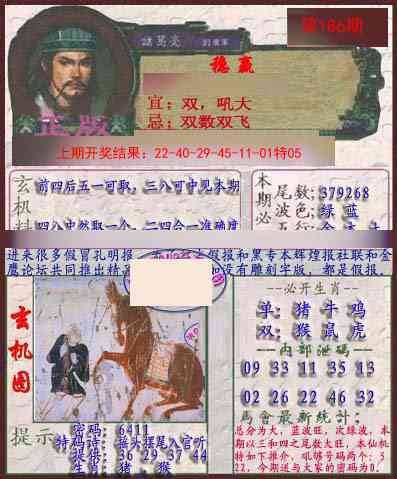 第186期
諸葛亮
稳赢
宜：双，吼大
忌：双数双飞
正版
上期开奖结果：22-40-29-45-11-01特05
玄机料
前四后五一可取，三八可中见本期
四八中然取一个，二四合一准确度
本期必
尾数:379268
波色:绿 蓝
五行:
进来很多假冒孔明报，
假报和黑专本辉煌报社联和金
鹰论坛共同推出精
没有雕刻字版，都是假报。
玄机图
--必开生肖--
单：猪牛鸡
双：猴鼠虎
--内部泄码--
09 33 11 35 13
02 26 22 46 32
马會最新统计：
总分为大，蓝波旺，次绿波，本
期以三和四之尾数大旺，本仙机
特如下推介，吼够号码两个：3
22，今期送与大家的密码为0。
提示
密码：6411
特码诗：摇头摆尾入官听
提供：36 29 37 44
生肖：猪，猴